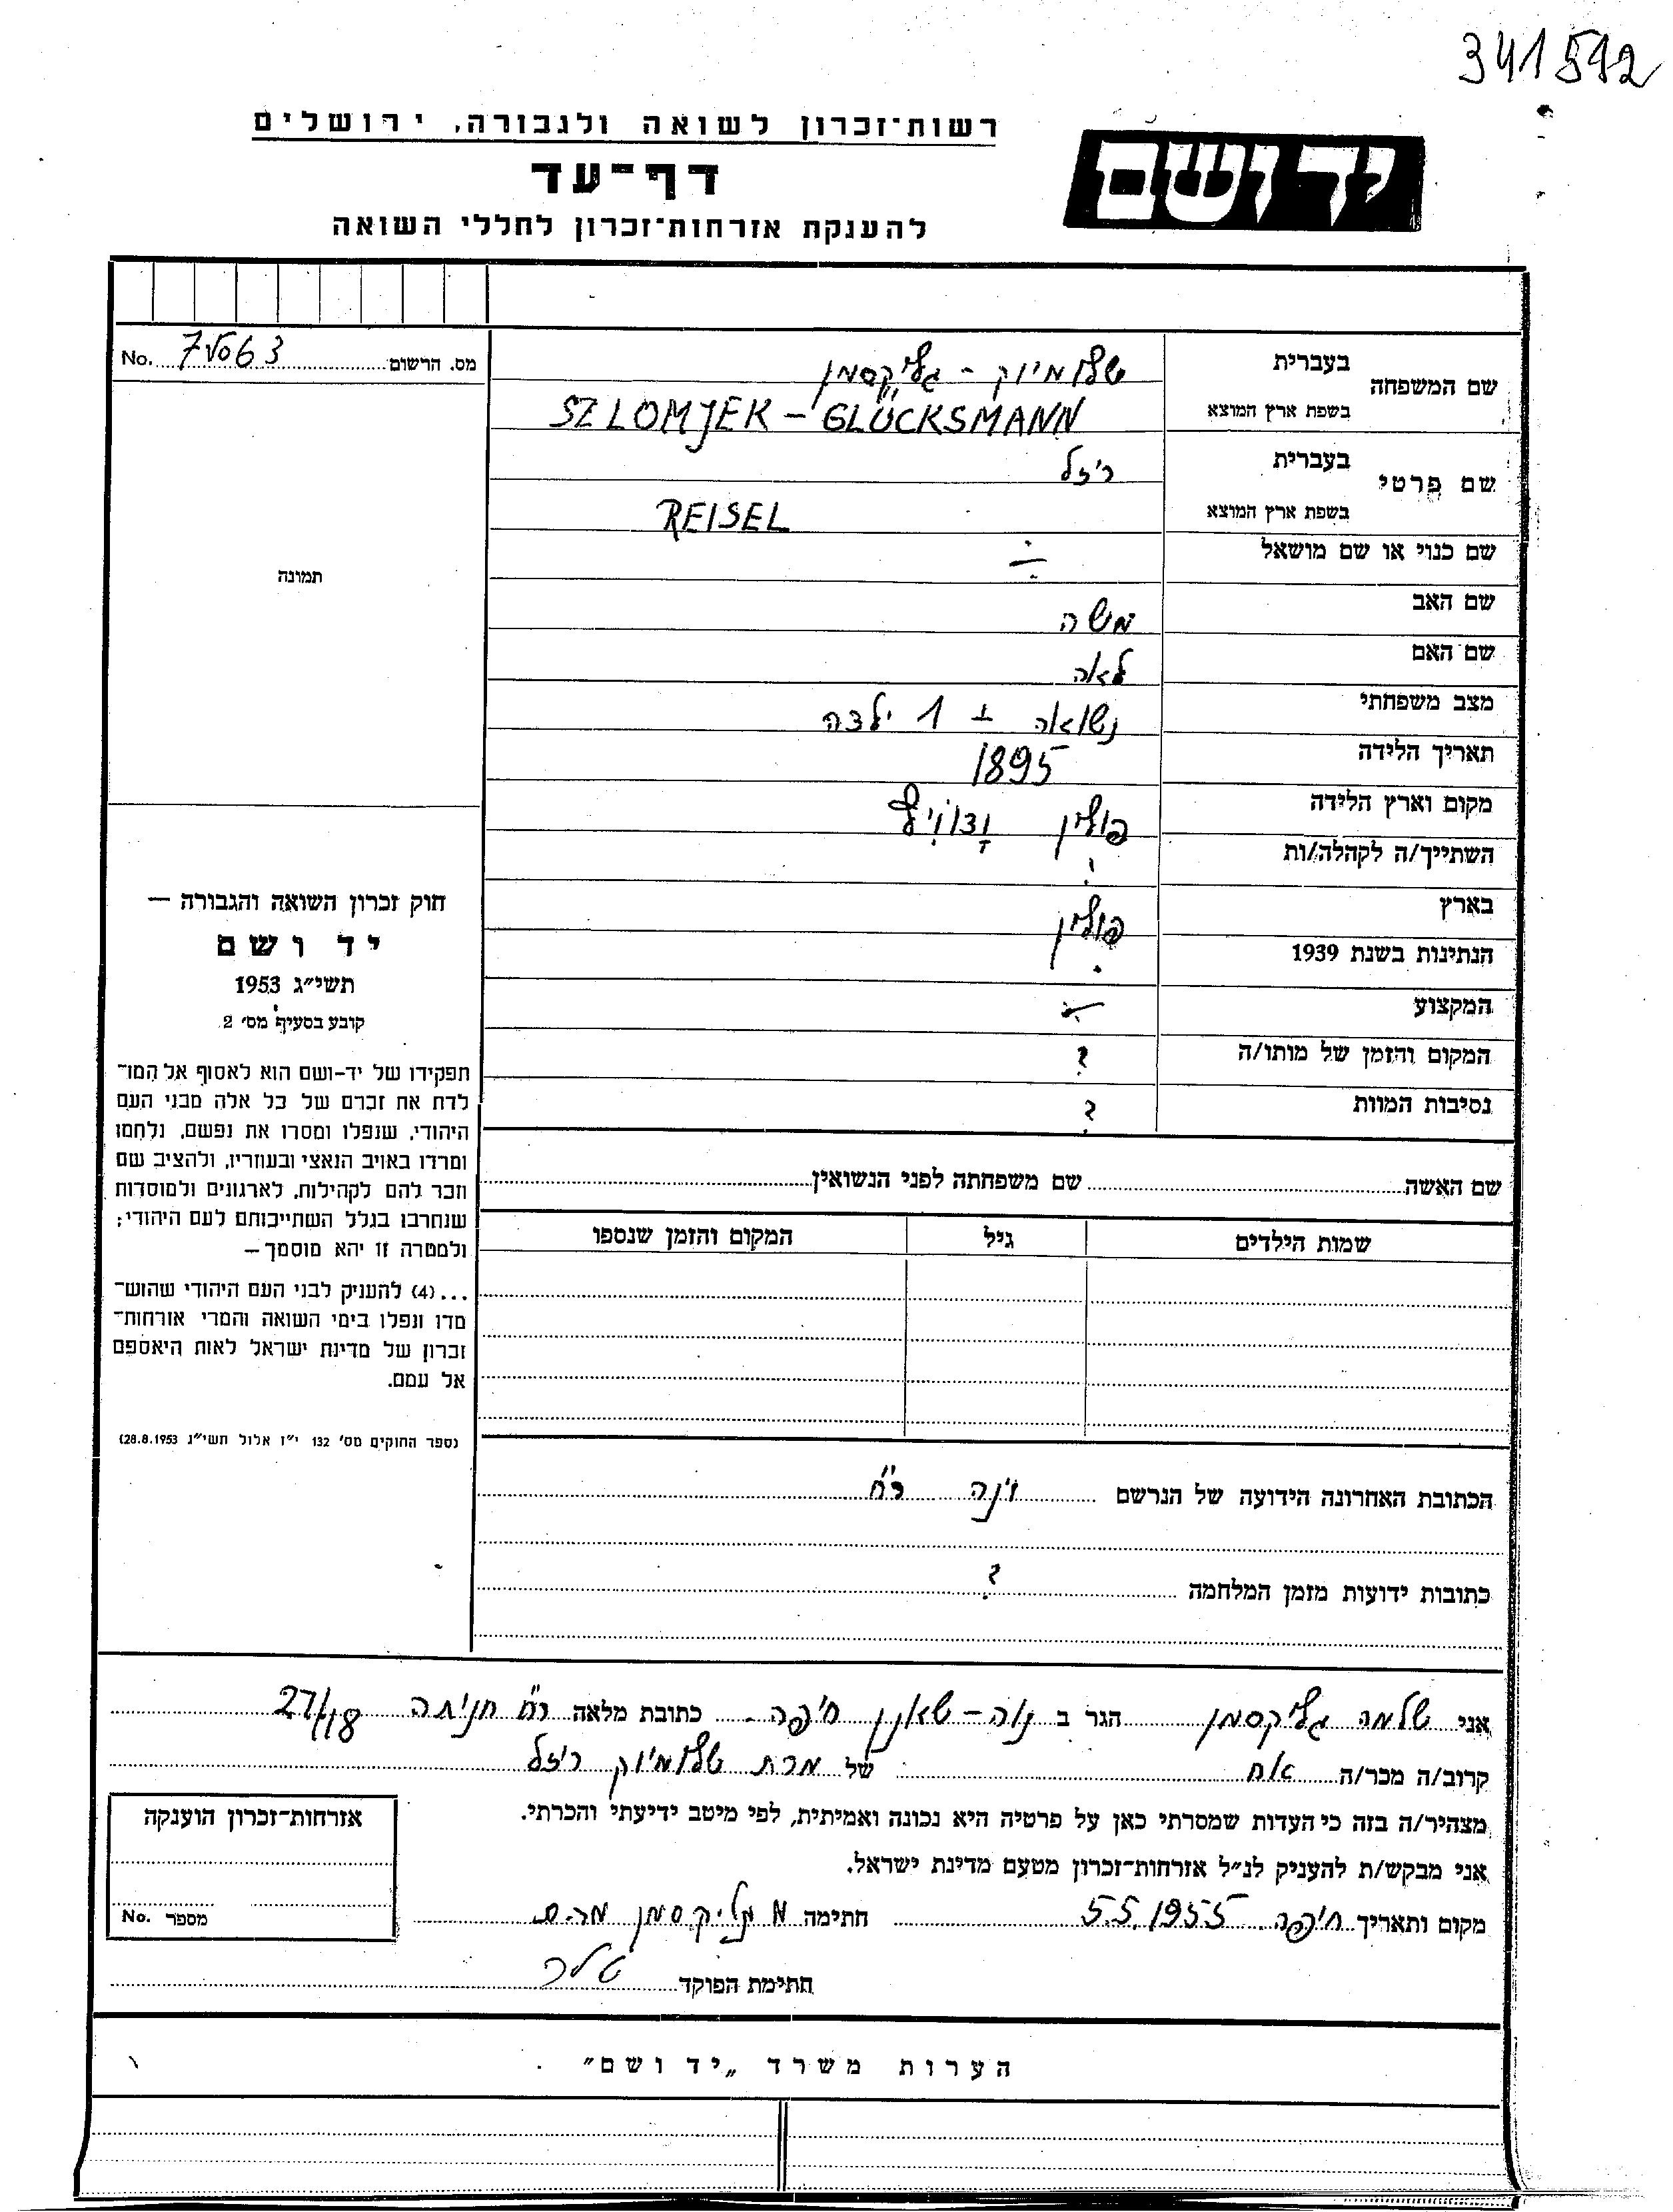 341512
רשות־זכרון לשואה ולגבורה, ירושלים
יד ושם
דף־עד
להענקת אזרחות־זכרון לחללי השואה
מס. הרשום No.
שם המשפחה
בעברית שלומיוק - גליקסמן
בשפת ארץ המוצא SZLOMJEK - GLÜCKSMANN
שם פרטי
בעברית ריזל
בשפת ארץ המוצא REISEL
שם כנוי או שם מושאל
שם האב משה
שם האם לאה
מצב משפחתי נשואה + 1 ילדה
תאריך הלידה 1895
מקום וארץ הלידה פולין
השתייך/ה לקהלה/ות
בארץ פולין
הנתינות בשנת 1939
המקצוע
המקום והזמן של מותו/ה ?
נסיבות המוות ?
תמונה
חוק זכרון השואה והגבורה —
יד ושם
תשי״ג 1953
קובע בסעיף מס׳ 2
תפקידו של יד-ושם הוא לאסוף אל המו־
לדת את זכרם של כל אלה מבני העם
היהודי, שנפלו ומסרו את נפשם, נלחמו
ומרדו באויב הנאצי ובעוזריו, ולהציב שם
וזכר להם לקהילות, לארגונים ולמוסדות
שנחרבו בגלל השתייכותם לעם היהודי;
ולמטרה זו יהא מוסמך —
...(4) להעניק לבני העם היהודי שהוש־
מדו ונפלו בימי השואה והמרי אזרחות־
זכרון של מדינת ישראל לאות היאספם
אל עמם.
(ספר החוקים מס׳ 132 י״ז אלול תשי״ג 28.8.1953)
שם האשה שם משפחתה לפני הנשואין
שמות הילדים גיל המקום והזמן שנספו
הכתובת האחרונה הידועה של הנרשם וינה רח׳
כתובות ידועות מזמן המלחמה ?
אני שלמה גליקסמן הגר ב נוה-שאנן חיפה כתובת מלאה רח׳ חניתה 27/18
קרוב/ה מכר/ה אח של מרת שלומיוק ריזל
מצהיר/ה בזה כי העדות שמסרתי כאן על פרטיה היא נכונה ואמיתית, לפי מיטב ידיעתי והכרתי.
אני מבקש/ת להעניק לנ״ל אזרחות־זכרון מטעם מדינת ישראל.
מקום ותאריך חיפה 5.5.1955 חתימה גליקסמן
חתימת הפוקד
אזרחות־זכרון הוענקה
מספר No.
הערות משרד „יד ושם״